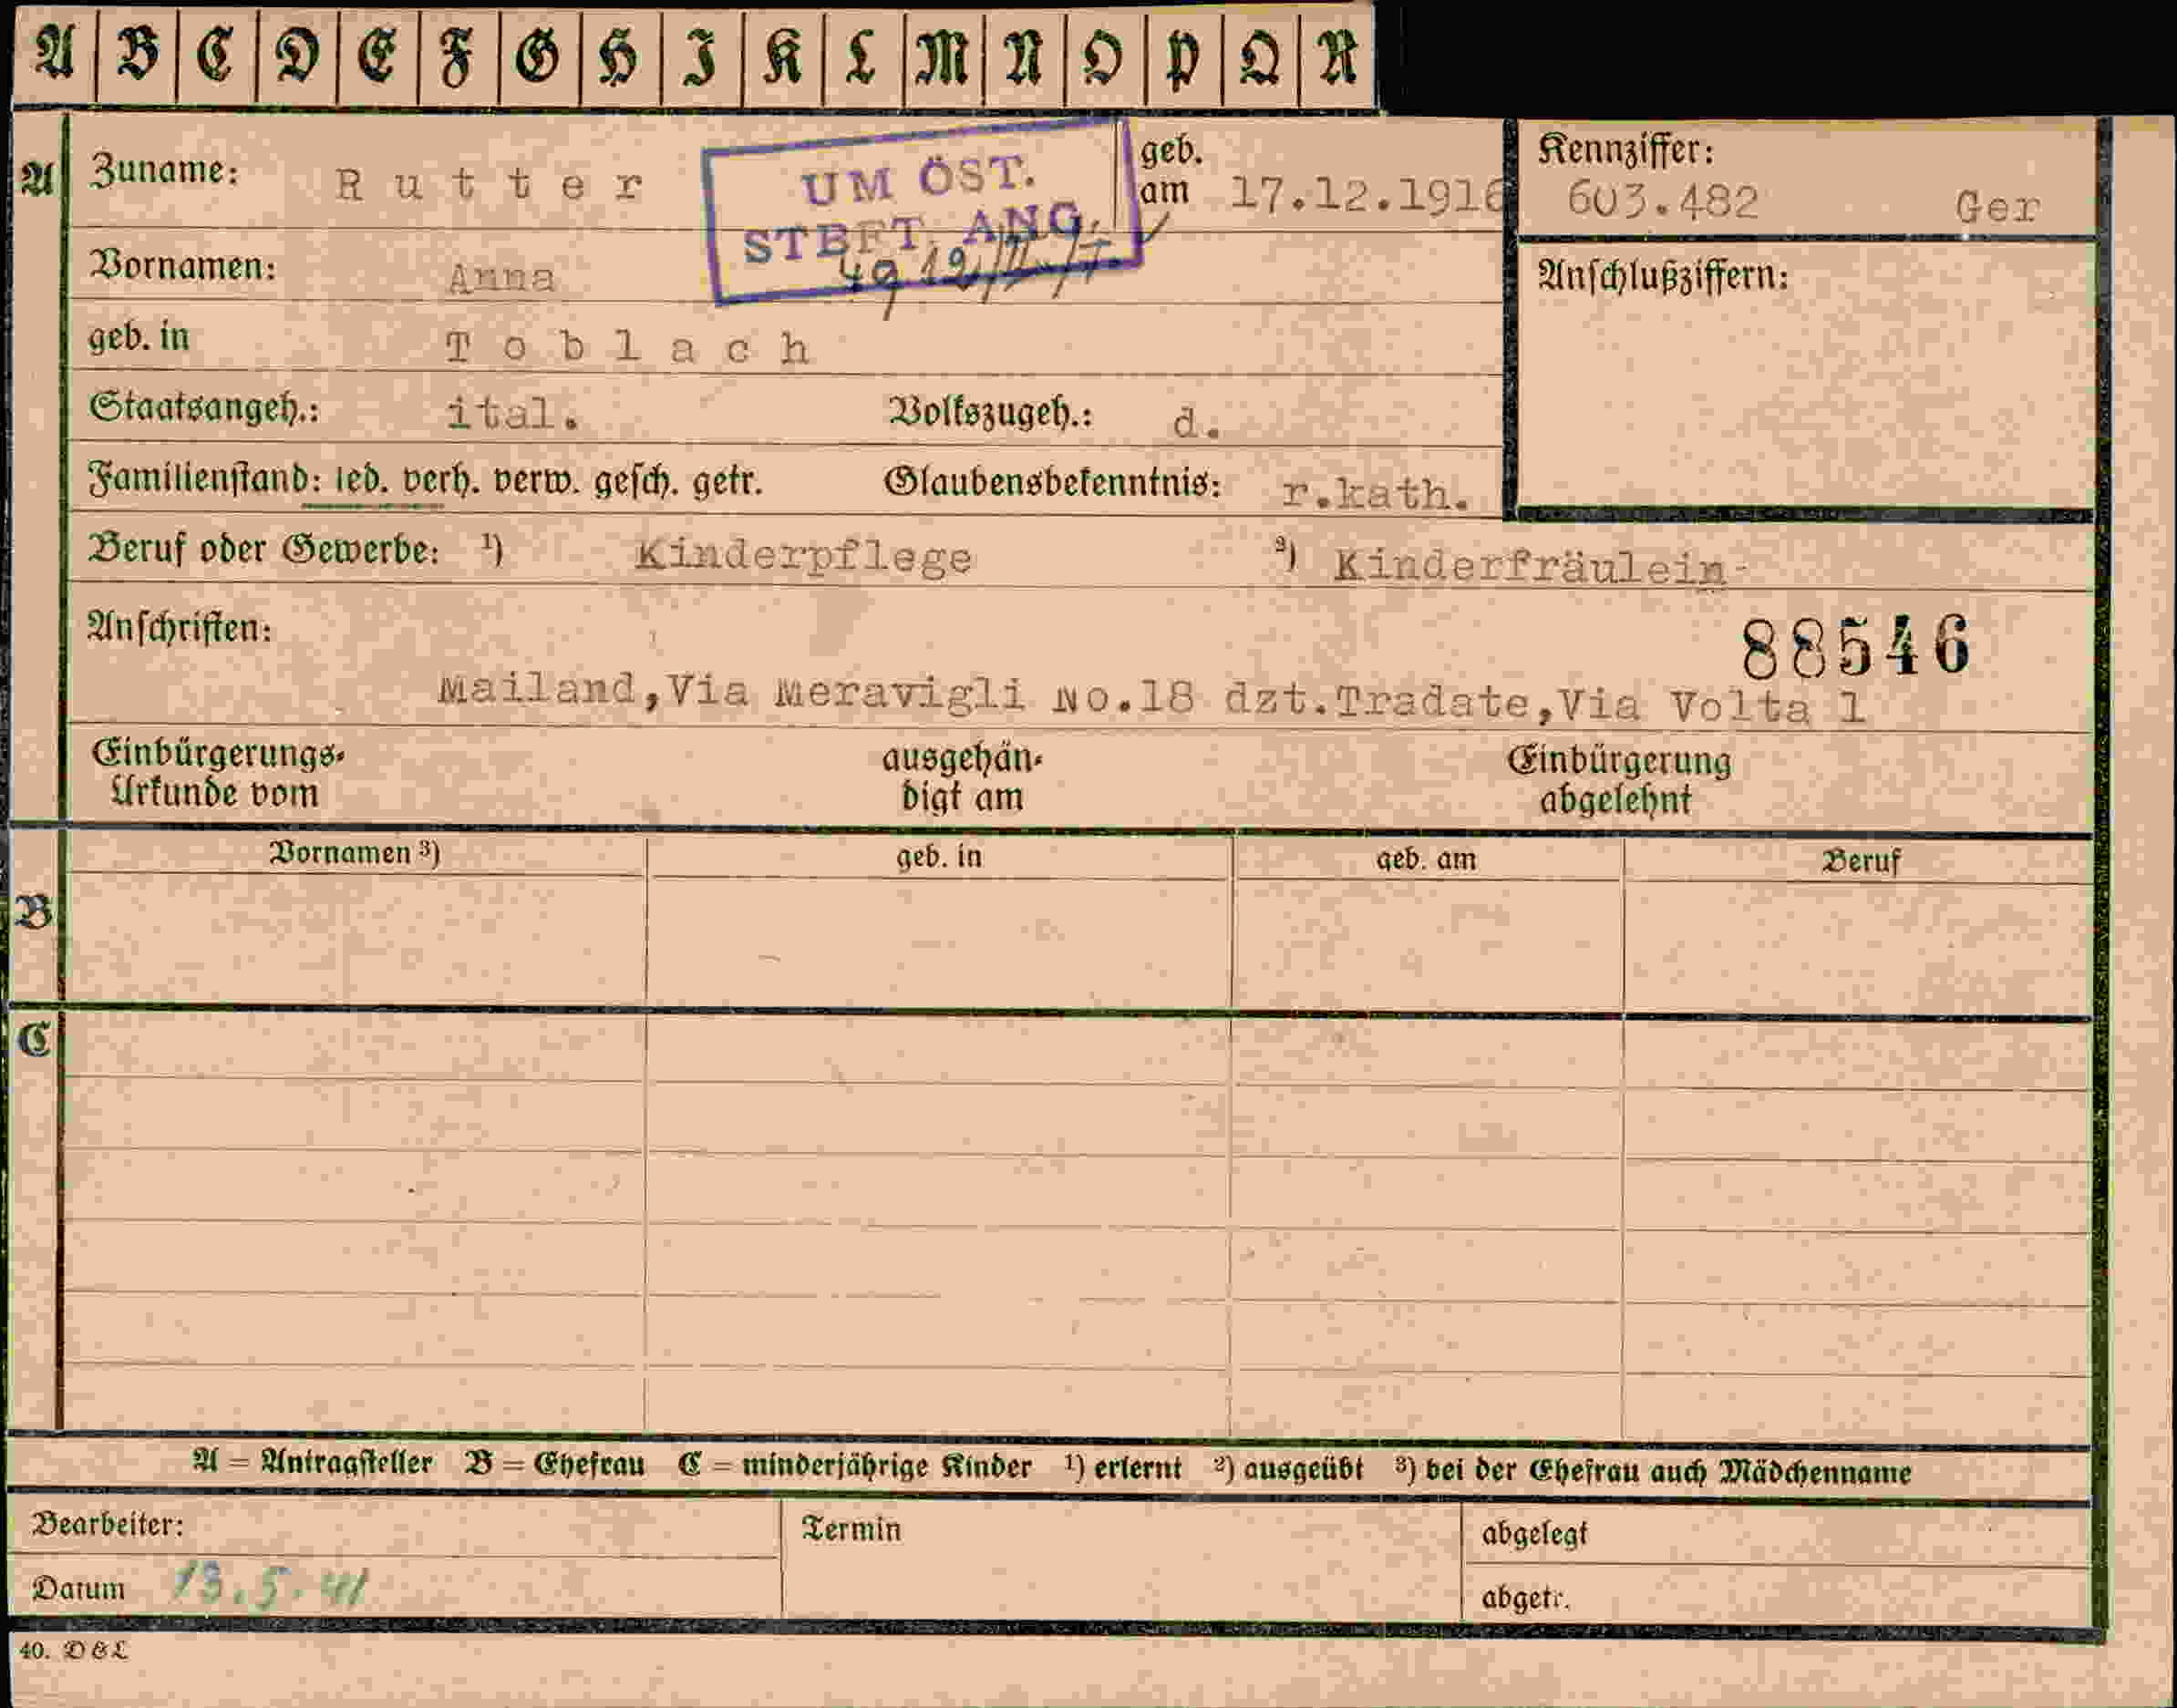 A B C D E F G H I K L M N O P Q R
A
Zuname: Rutter
UM ÖST.
STBFT. ANG.
geb. am 17.12.1916
Kennziffer:
603.482 Ger
Vornamen: Anna
Anschlußziffern:
geb. in Toblach
Staatsangeh.: ital. Volkszugeh.: d.
Familienstand: led. verh. verw. gesch. getr. Glaubensbekenntnis: r.kath.
Beruf oder Gewerbe: ¹) Kinderpflege ²) Kinderfräulein
Anschriften:
88546
Mailand,Via Meravigli No.18 dzt.Tradate,Via Volta 1
Einbürgerungs-Urkunde vom ausgehän-digt am Einbürgerung abgelehnt
Vornamen ³) geb. in geb. am Beruf
B
C
A = Antragsteller B = Ehefrau C = minderjährige Kinder ¹) erlernt ²) ausgeübt ³) bei der Ehefrau auch Mädchenname
Bearbeiter: Termin abgelegt
Datum 13.5.41 abgetr.
40. DGL